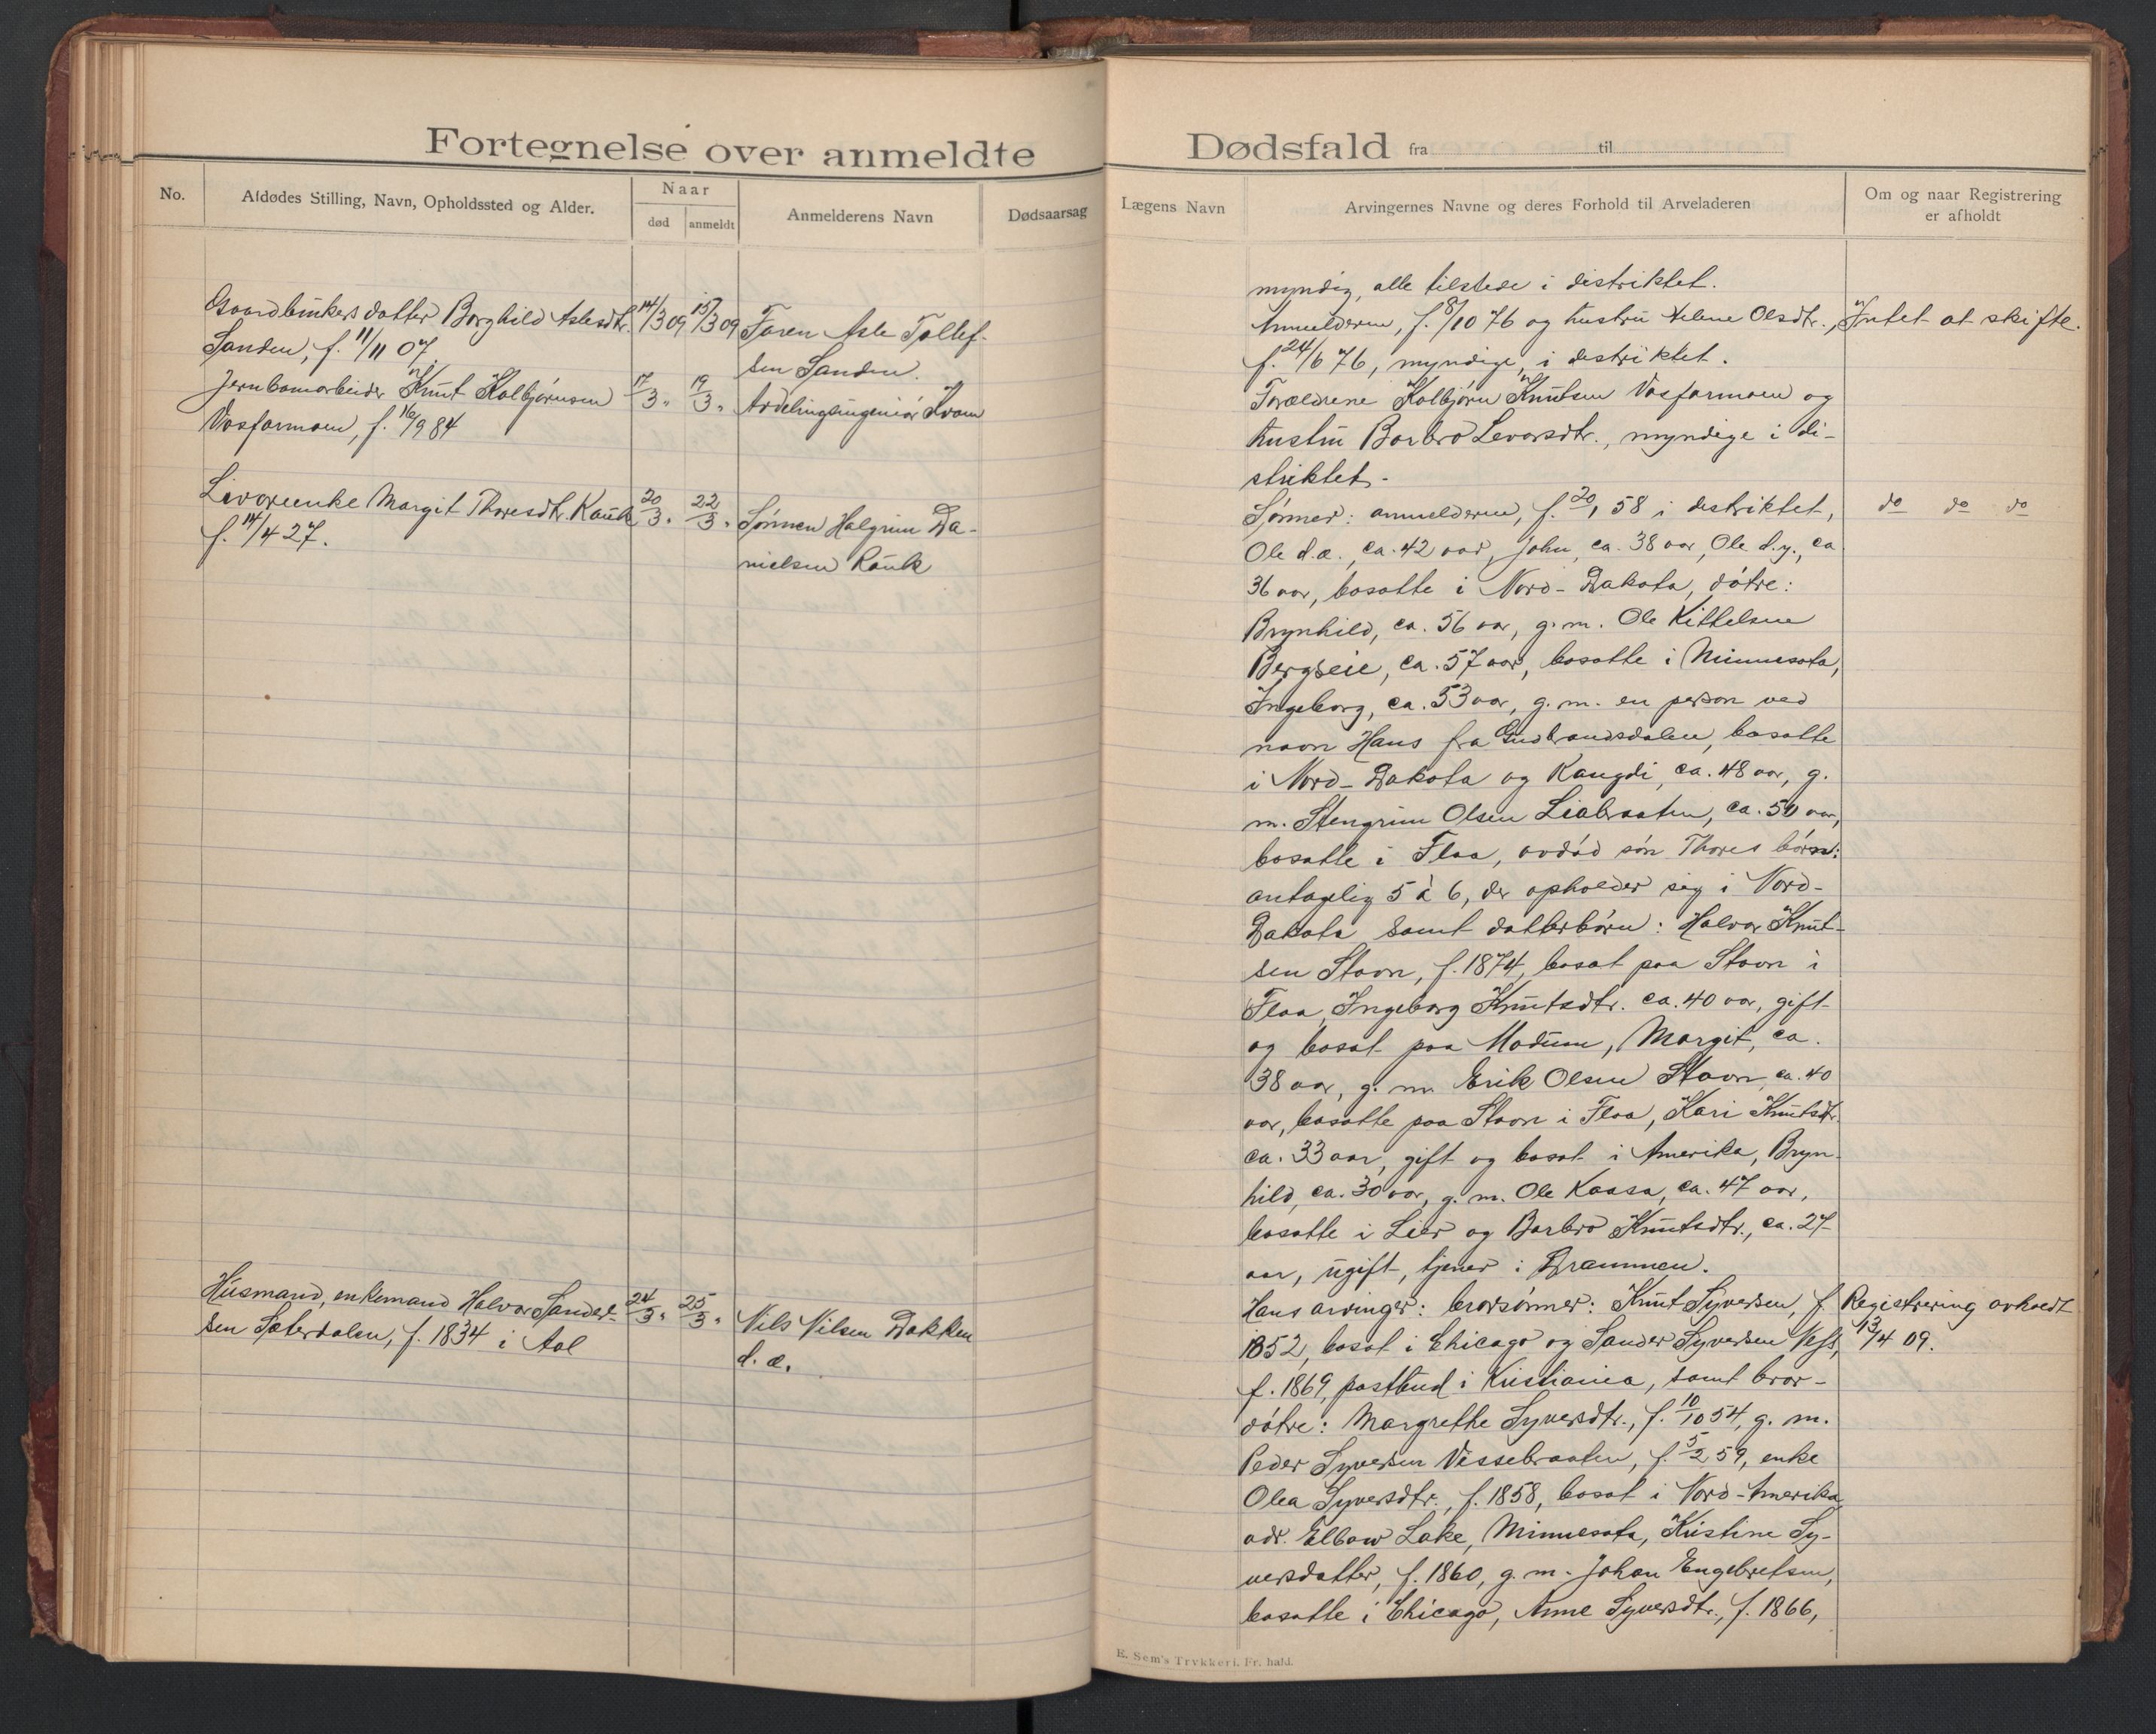 Fortegnelse over anmeldte
No.
Afdødes Stilling, Navn, Opholdssted og Alder.
Naar
død
anmeldt
Anmelderens Navn
Dødsaarsag
Gaardbrukersdatter Borghild Aslesdtr. 14/3 09 15/3 09 Faren Asle Tollef-
Sanden, f. 11/11 07.
sen Sanden.
Jernbanearbeider Knut Kolbjørnsen 17/3 " 19/3 " Avdelingsingeniør Kvam
Vasfarmoen, f. 16/9 84
Livøreenke Margit Thoresdtr. Rauk 20/3 " 22/3 " Sønnen Halgrim Da-
f. 14/4 27.
nielsen Rauk
Husmand, enkemand Halvor Sander- 24/3 " 25/3 " Nils Nilsen Bakken
sen Sæterdalen, f. 1834 i Aal
d. æ.
Dødsfald fra til
Lægens Navn
Arvingernes Navne og deres Forhold til Arveladeren
Om og naar Registrering
er afholdt
myndig, alle tilstede i distriktet.
Anmelderen, f. 8/10 76 og hustru Helene Olsdtr., Intet at skifte.
f. 24/6 76, myndige, i distriktet.
Forældrene Kolbjørn Knutsen Vasfarmoen og
hustru Barbro Levorsdtr., myndige i di-
striktet.
Sønner: anmelderen, f. 20/1 58 i distriktet, do do do
Ole d.æ., ca. 42 aar, John, ca. 38 aar, Ole d.y., ca
36 aar, bosatte i Nord-Dakota, døtre:
Brynhild, ca. 56 aar, g.m. Ole Kittelsen
Bergseie, ca. 57 aar, bosatte i Minnesota,
Ingeborg, ca. 53 aar, g. m. en person ved
navn Hans fra Gudbrandsdalen, bosatte
i Nord-Dakota og Rangdi, ca. 48 aar, g.
m. Stengrim Olsen Liabraaten, ca. 50 aar,
bosatte i Flaa, avdød søn Thores børn:
antagelig 5 à 6, der opholder sig i Nord-
Dakota samt datterbørn: Halvor Knut-
sen Stavn, f. 1874, bosat paa Stavn i
Flaa, Ingeborg Knutsdtr. ca. 40 aar, gift
og bosat paa Modum, Margit, ca.
38 aar, g. m. Erik Olsen Stavn, ca. 40
aar, bosatte paa Stavn i Flaa, Kari Knutsdtr.
ca. 33 aar, gift og bosat i Amerika, Bryn-
hild, ca. 30 aar, g. m. Ole Kaasa, ca. 47 aar,
bosatte i Lier og Barbro Knutsdtr., ca. 27
aar, ugift, tjener i Drammen.
Hans arvinger: brorsønner: Knut Syversen, f. Registrering avholdt
1852, bosat i Chicago og Sander Syversen Næss, 13/4 09.
f. 1869, postbud i Kristiania, samt bror-
døtre: Margrethe Syversdtr., f. 10/10 54, g. m.
Peder Syversen Vissebraaten, f. 5/2 59, enke
Olea Syversdtr., f. 1858, bosat i Nord-Amerika
adr. Elbow Lake, Minnesota, Kristine Sy-
versdatter, f. 1860, g. m. Johan Engebretsen,
bosatte i Chicago, Anne Syversdtr., f. 1866,
E. Sem's Trykkeri. Fr. hald.